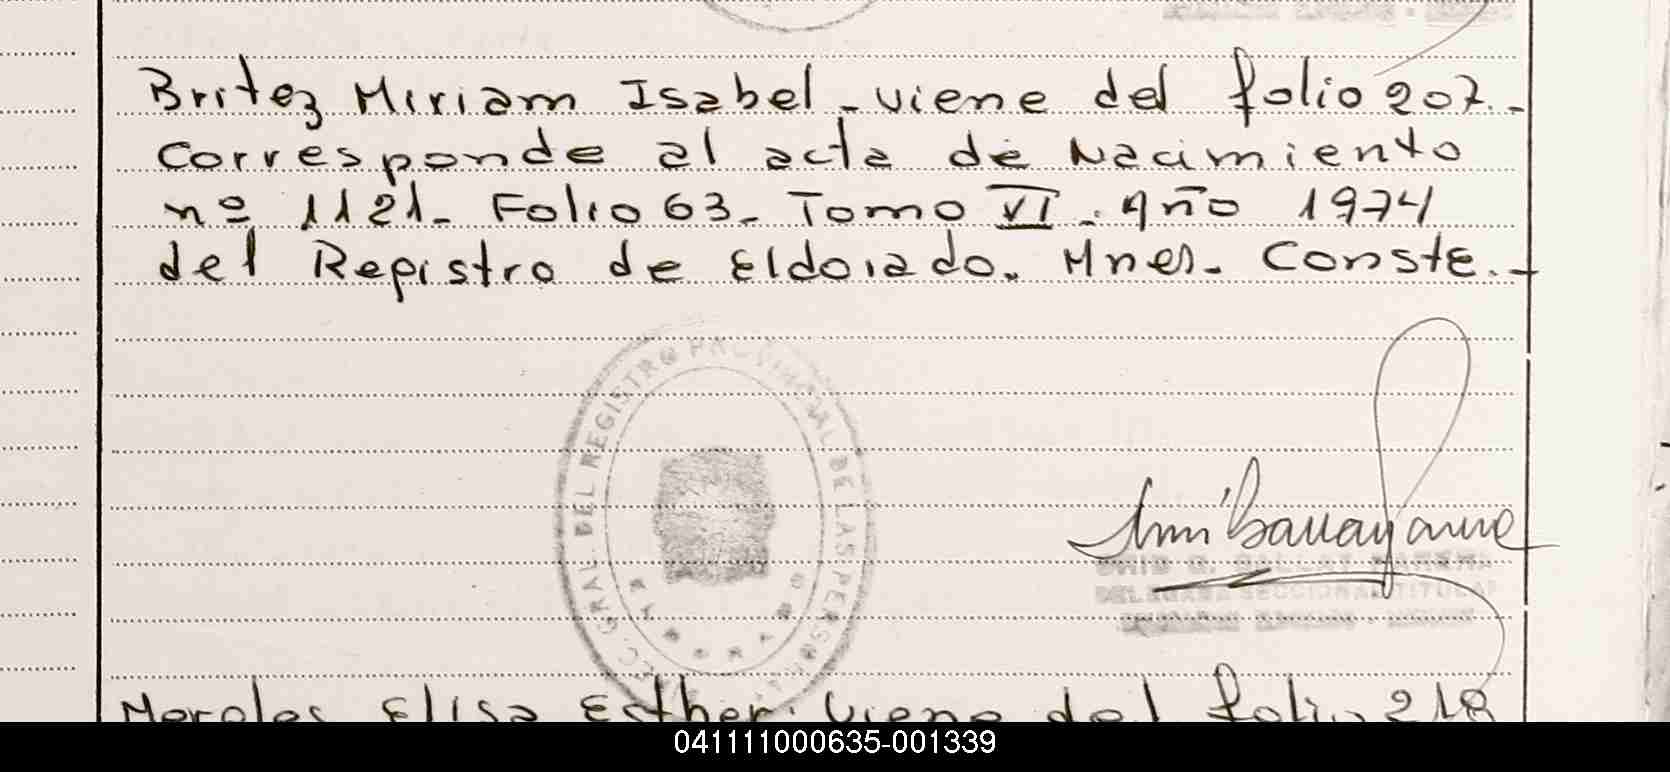 Britez Miriam Isabel - viene del folio 207.-
Corresponde al acta de Nacimiento
nº 1121. Folio 63. Tomo VI. Año 1974
del Registro de Eldorado. Mnes. Conste.-
GRAL. DEL REGISTRO PROVINCIAL DE LAS PERSONAS
DELEGADA SECCIONAL TITULAR
Morales Elisa Esther. Viene del folio 218
041111000635-001339